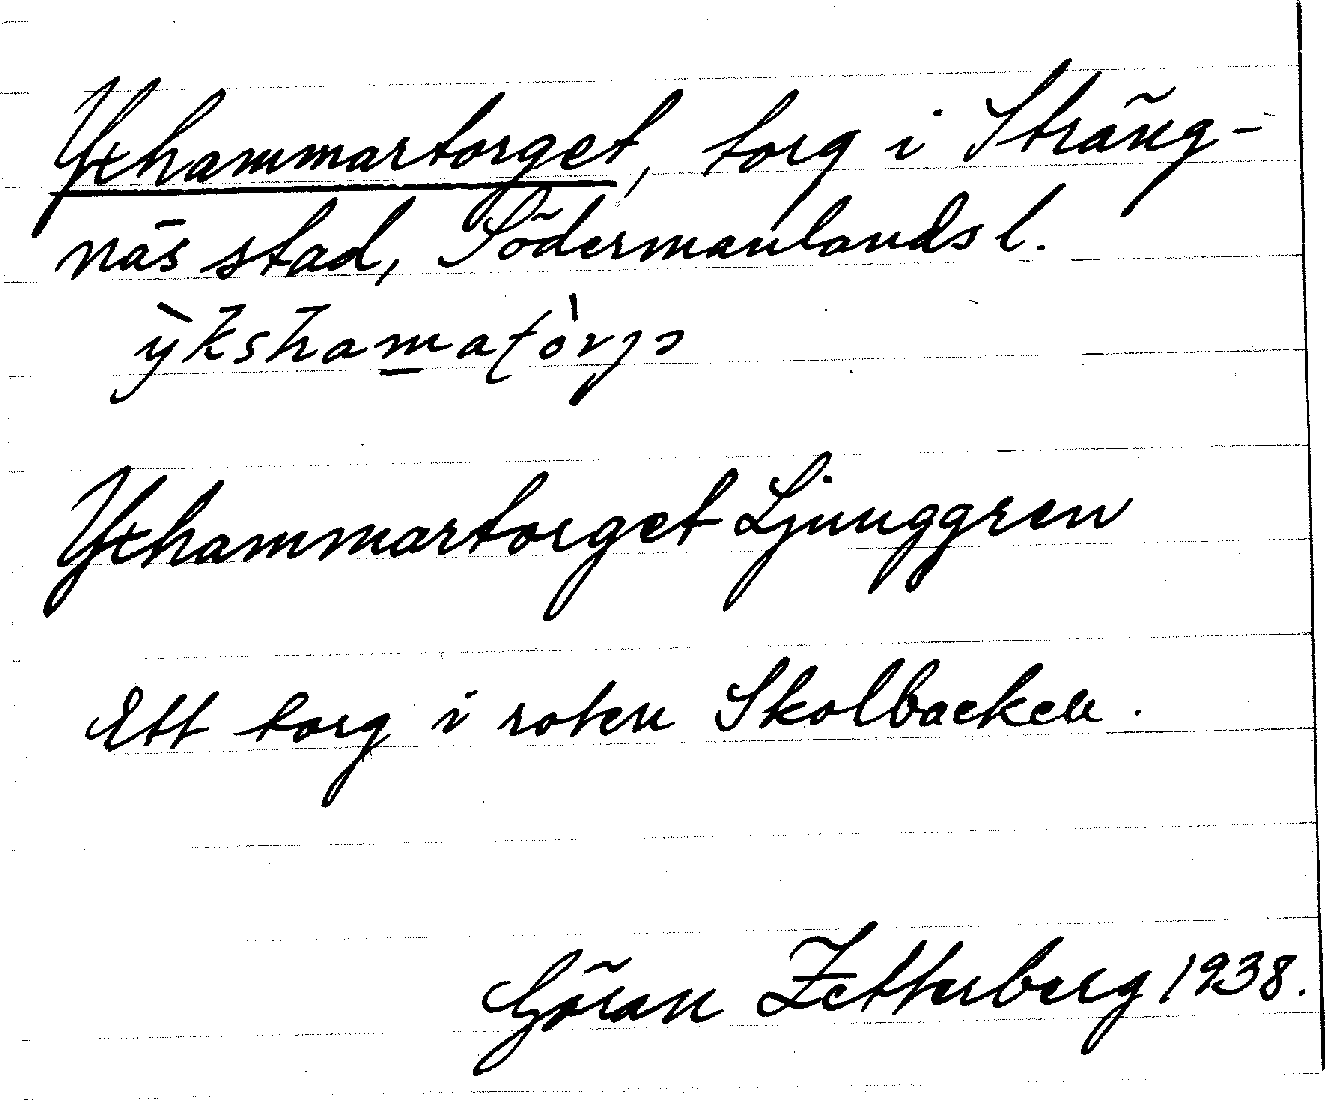 Yxhammartorget, torg i Sträng-
näs stad, Södermanlands l.
ỳkshamatòrjə
Yxhammartorget Ljunggren
Ett torg i roten Skolbacken.
Göran Zetterberg 1938.